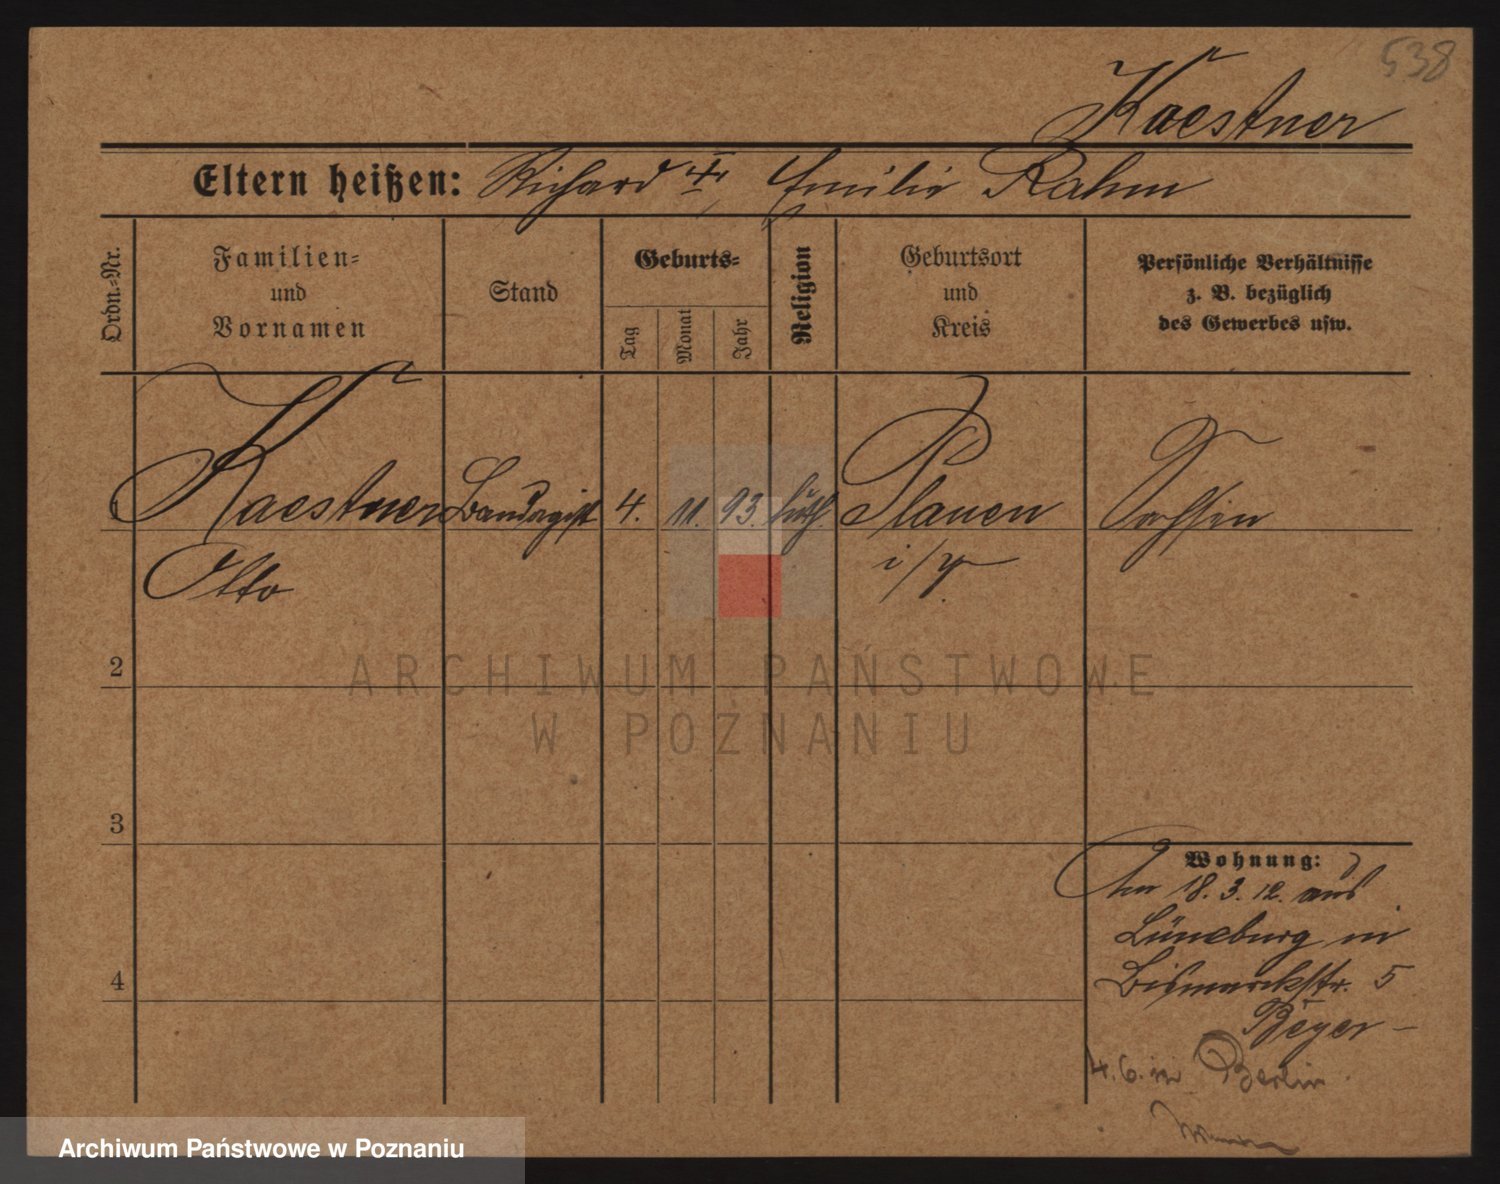 538
Kaestner
Eltern heißen: Richard u. Emilie Rahm
Ordn.-Nr.
Familien-
und
Vornamen
Stand
Geburts-
Tag
Monat
Jahr
Religion
Geburtsort
und
Kreis
Persönliche Verhältnisse
z. B. bezüglich
des Gewerbes usw.
1 Kaestner Bandagist 4. 11. 93. luth Plauen Sachsen
Otto i/V.
2
3
4
Wohnung:
Am 18. 3. 12. aus
Lüneburg in
Bismarckstr. 5
Beyer
4. 6. in Berlin
ARCHIWUM PAŃSTWOWE
W POZNANIU
Archiwum Państwowe w Poznaniu